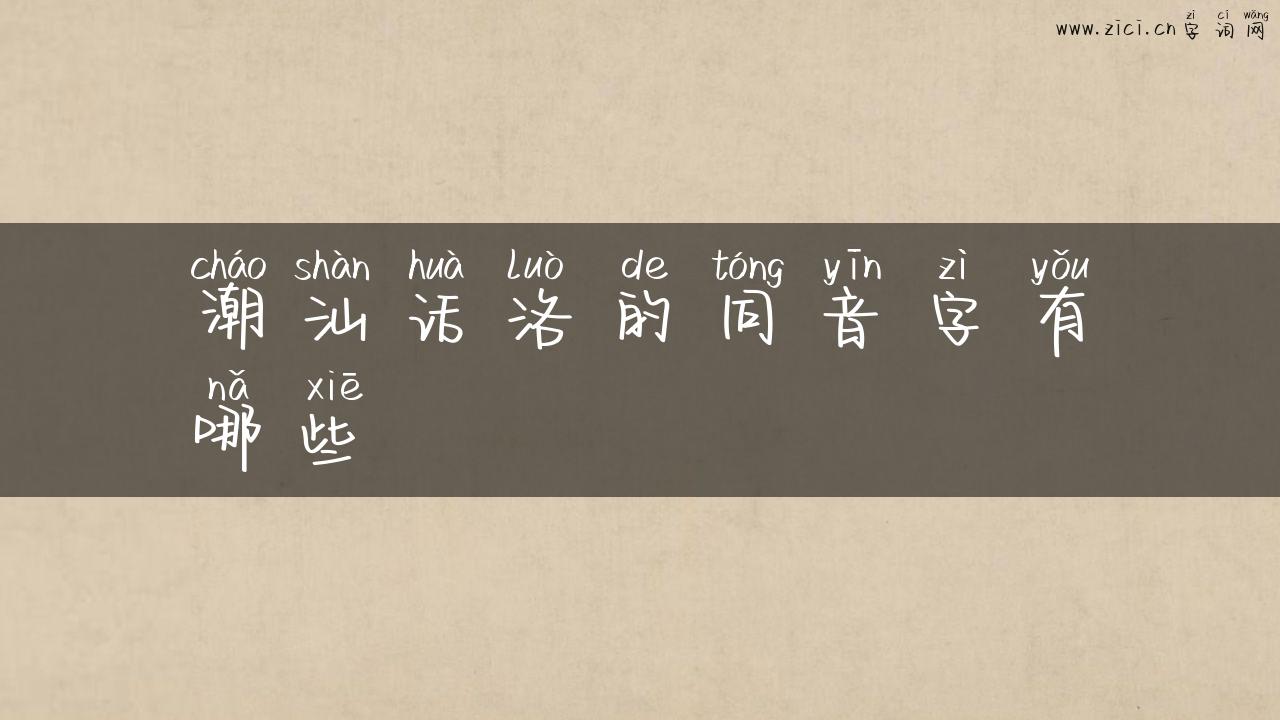 zì cí wǎng
www.zici.cn 字 词 网
cháo shàn huà luò de tóng yīn zì yǒu
潮 汕 话 洛 的 同 音 字 有
nǎ xiē
哪 些